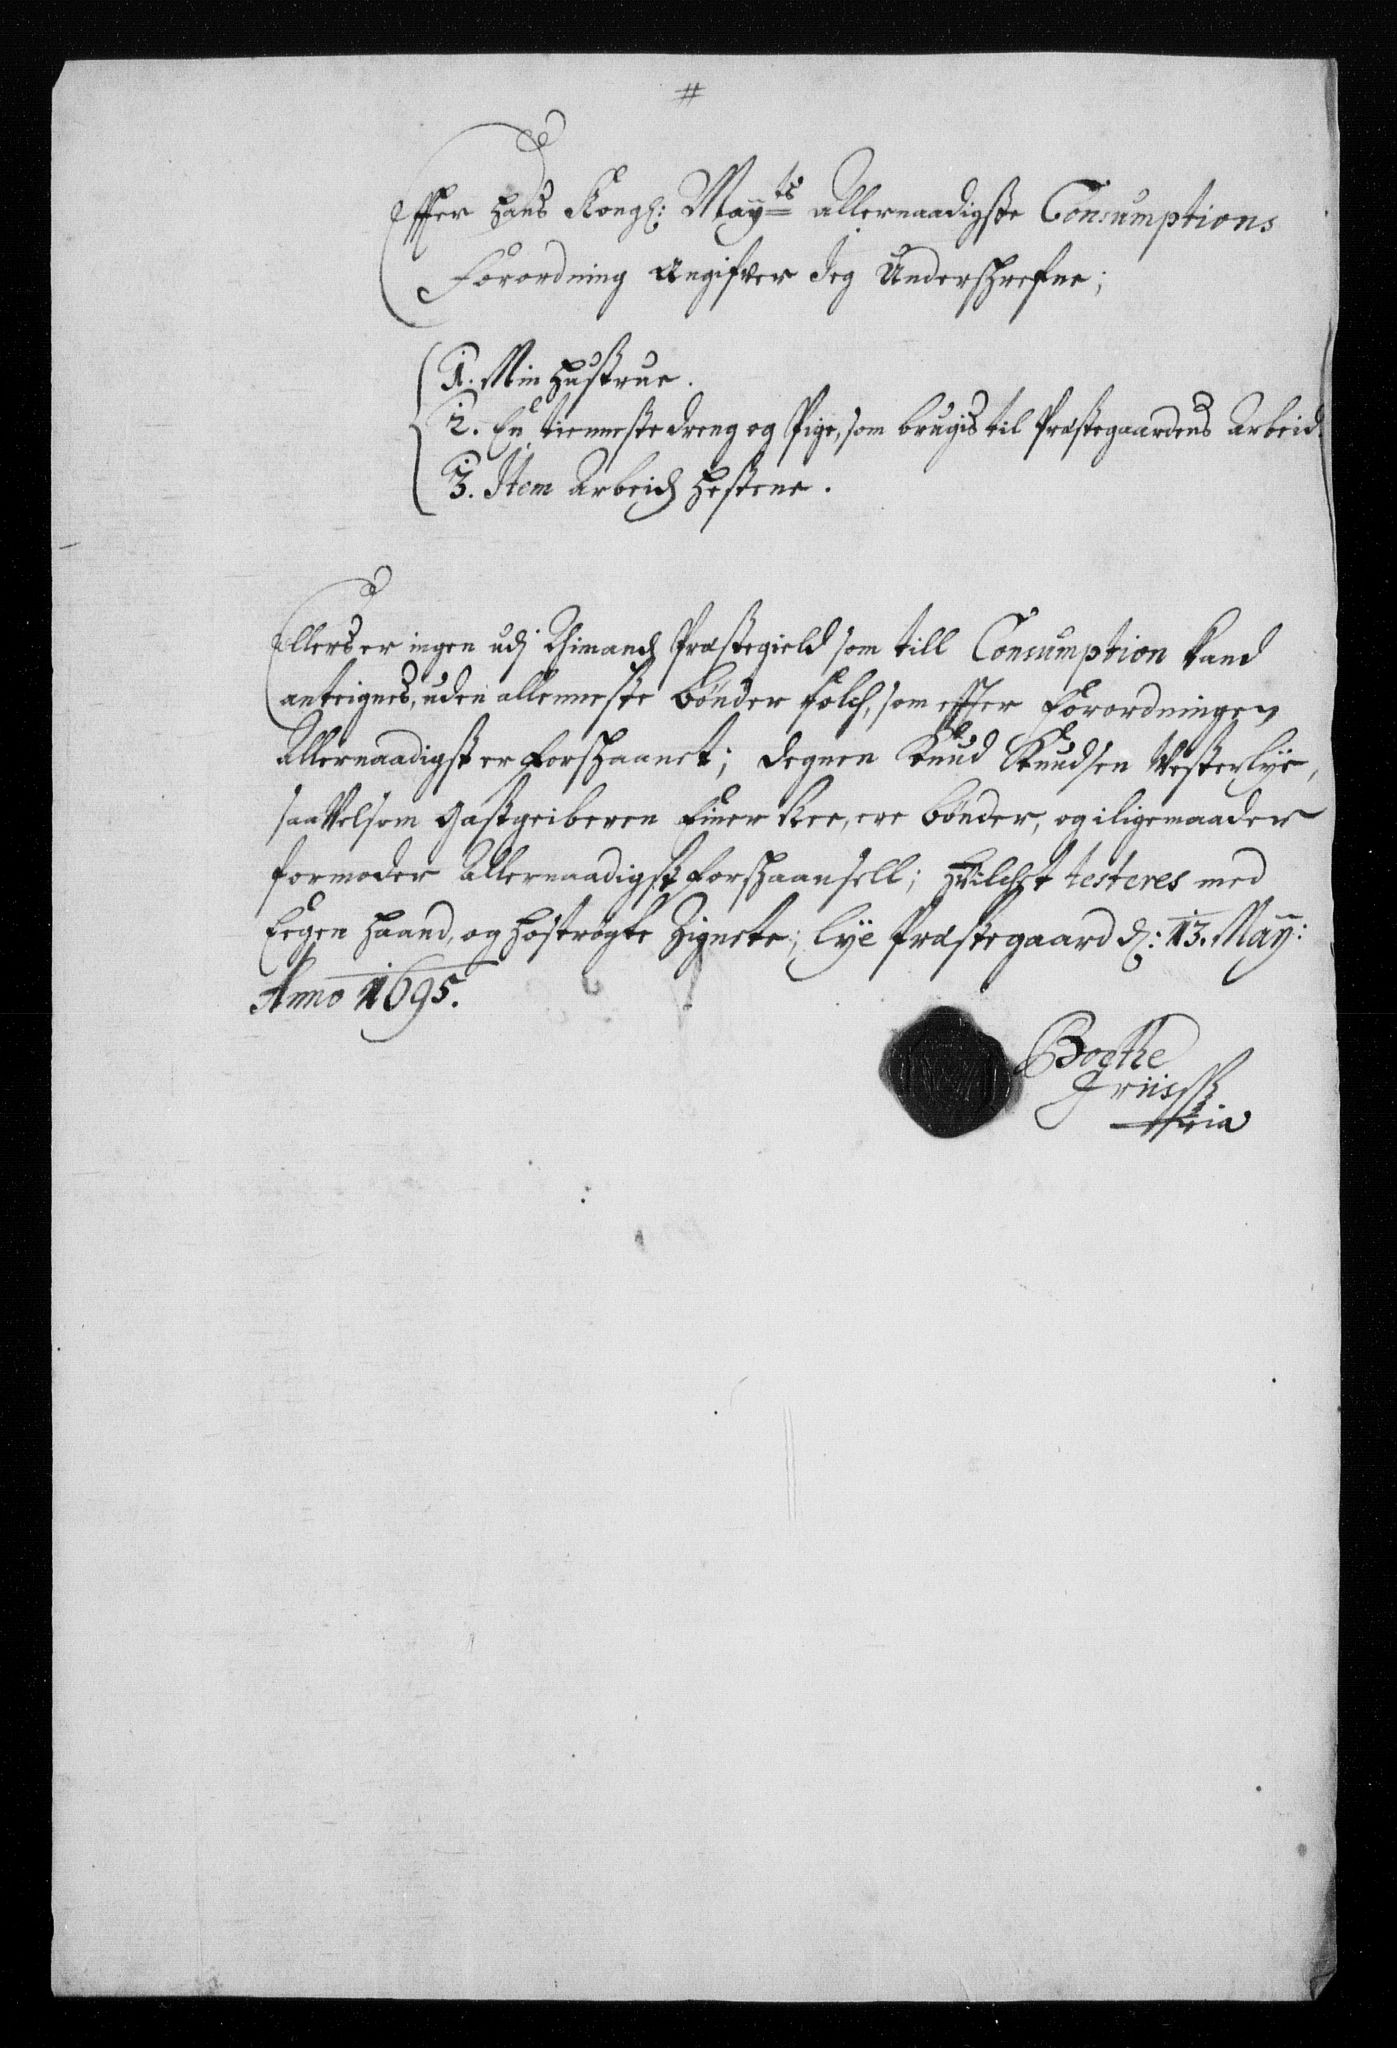 #
Effer hans Kongl: Mayts allernaadigste Consumptions
Forordning Angifver Jeg Underschrefne;
1. Min hustrue.
2. En tienneste dreng og Pige, som brugis til Præstegaardens Arbeid.
3. Item Arbeids hestene.
Ellers er ingen udj Præstegield som till Consumption kand
anteignes, uden alleneste bønder folch, som effter Forordningen
Allernaadigst er forschaanet; degnen Knud Knudsen Vesterlye,
saa velsom gastgeiberen Einer, ere bønder, og iligemaader
formoder Allernaadigst forschaansell; hvilchet testeres med
Eegen haand, og hostrøgte Zignete; Lye Præstegaard d: 13. May:
Anno 1695.
Boethe